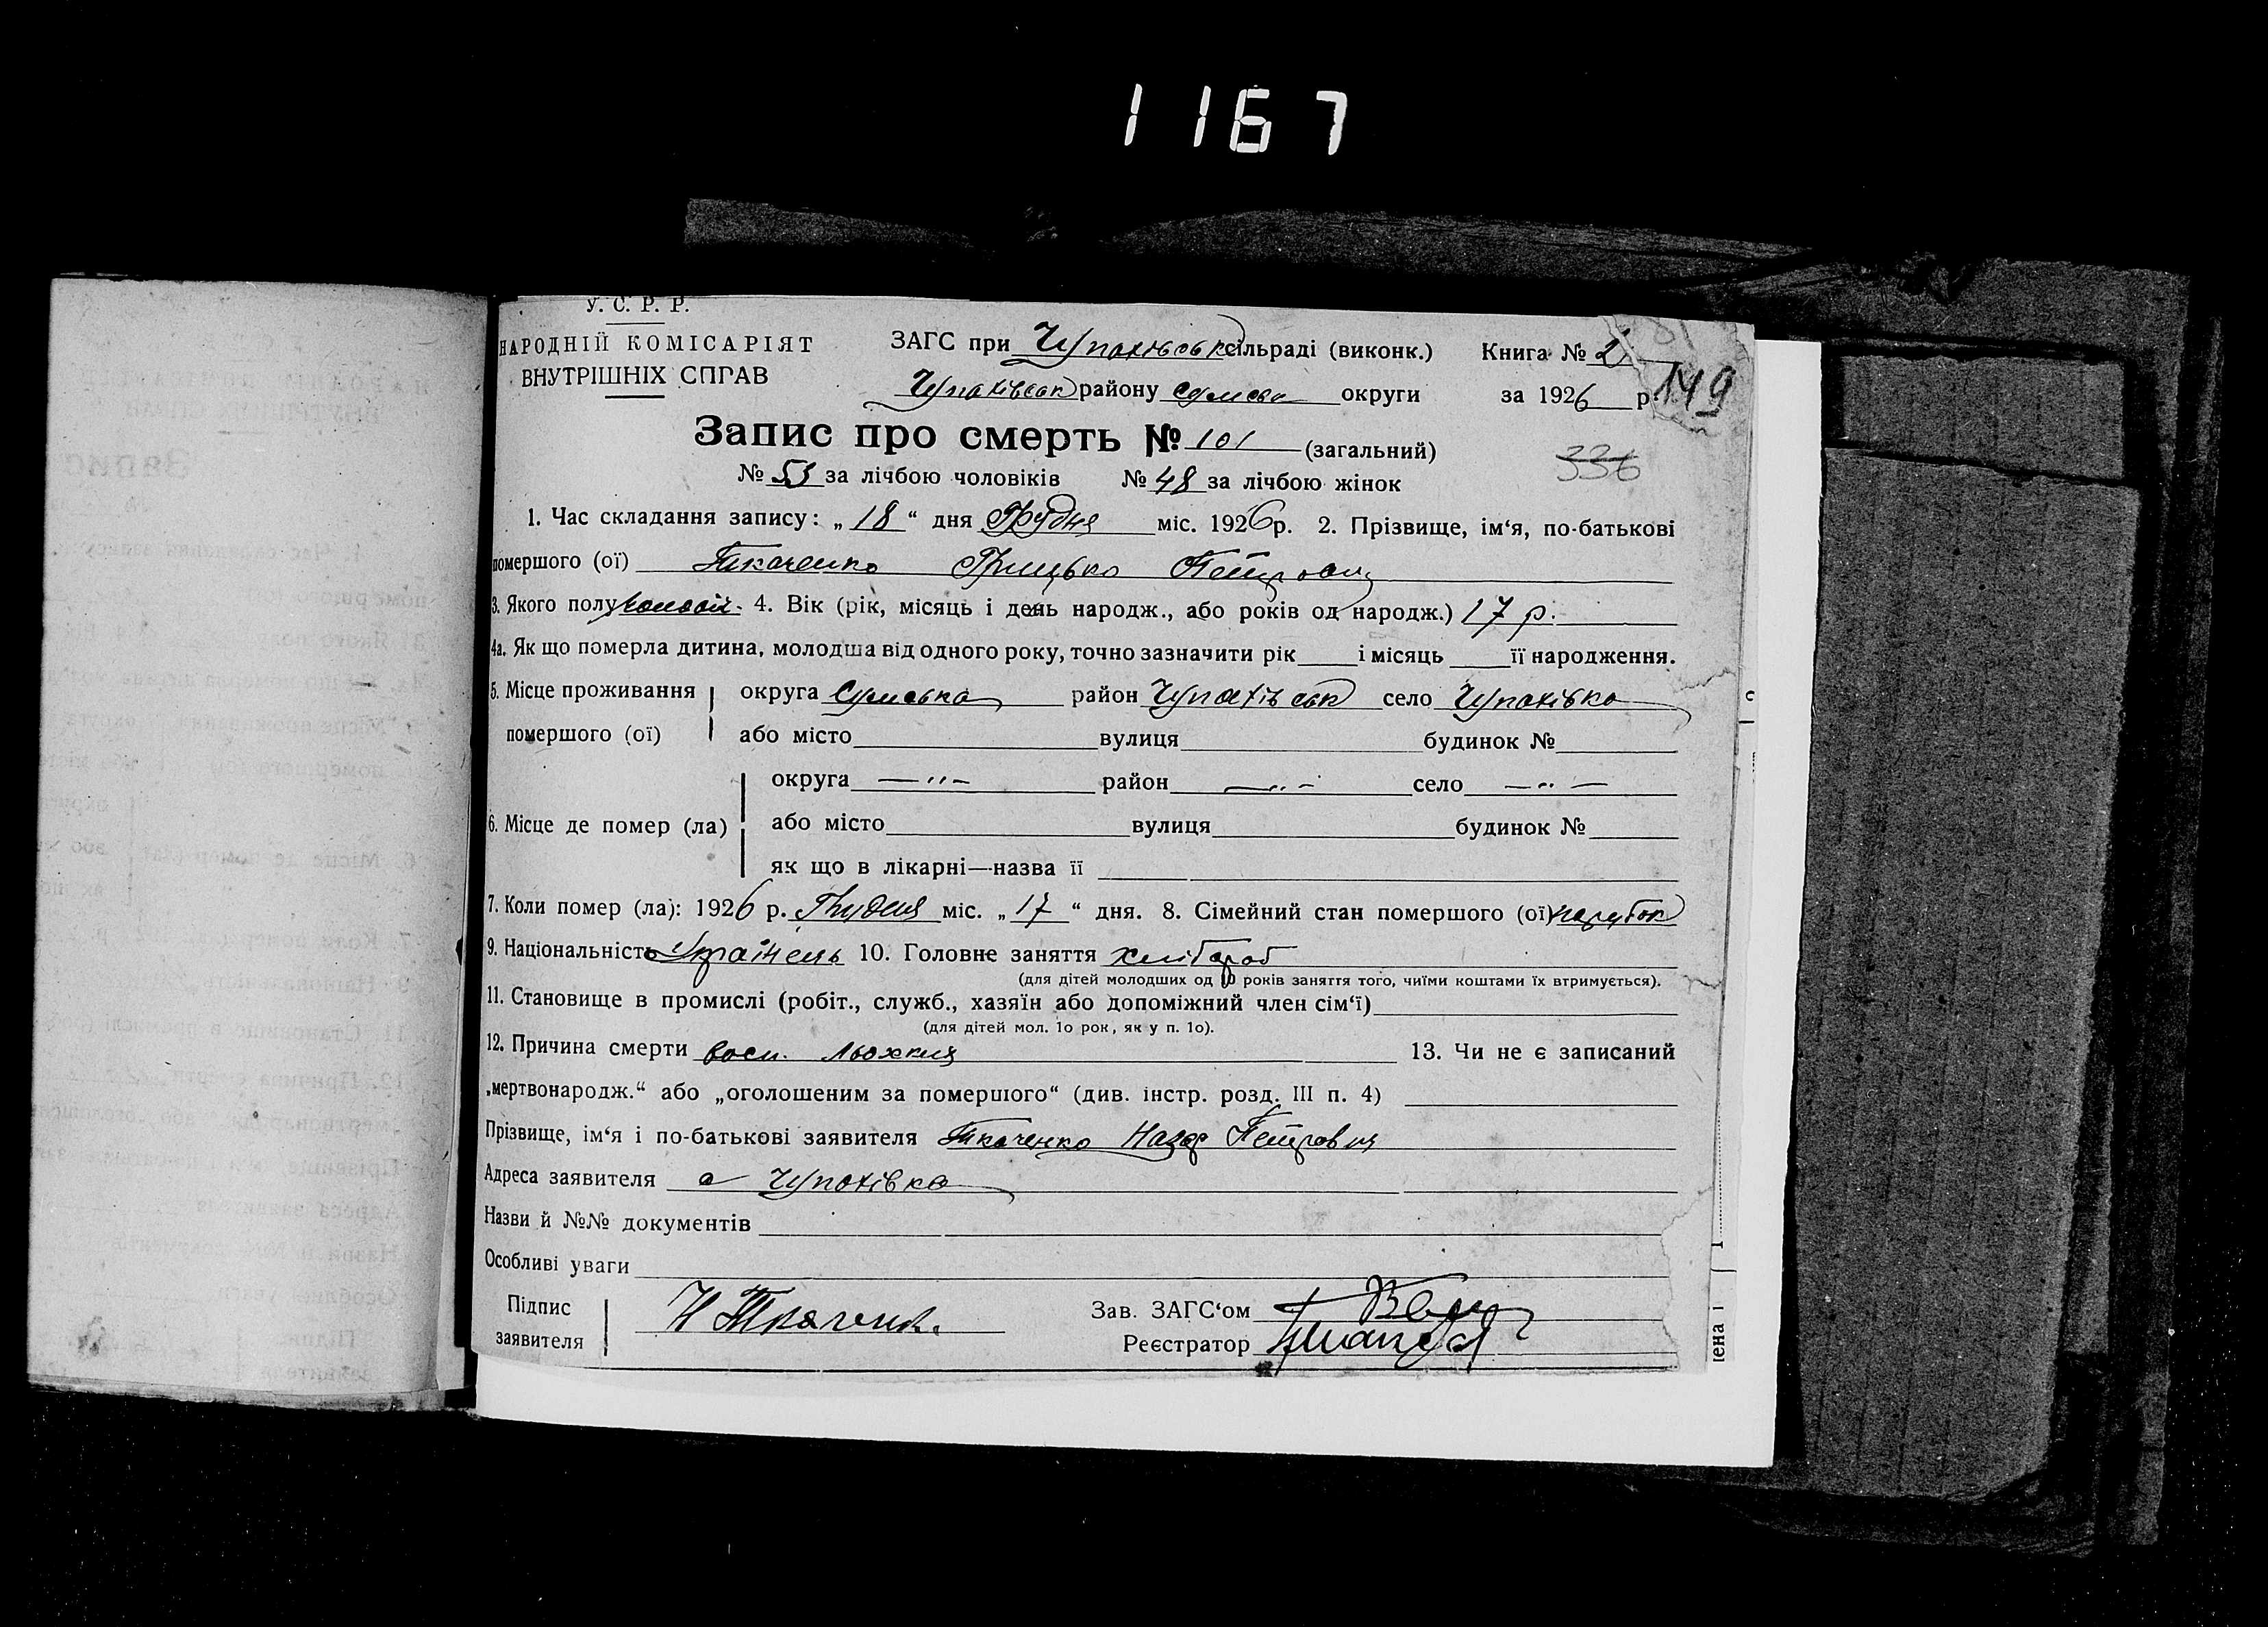 1167
У. С. Р. Р.
НАРОДНІЙ КОМІСАРІЯТ
ВНУТРІШНІХ СПРАВ
ЗАГС при Чупахівськ сільраді (виконк.) Книга № 2
Чупахівськ району Сумськ округи за 1926 р.
149
Запис про смерть № 101 (загальний)
336
№ 53 за лічбою чоловіків № 48 за лічбою жінок
1. Час складання запису: „18“ дня Грудня міс. 1926 р. 2. Прізвище, ім‘я, по-батькові
помершого (ої) Ткаченко Грицько Петрович
3. Якого полу 4. Вік (рік, місяць і день народж., або років од народж.) 17 р.
4а. Як що померла дитина, молодша від одного року, точно зазначити рік і місяць її народження.
5. Місце проживання помершого (ої) округа Сумська район Чупахівськ село Чупахівка
або місто вулиця будинок №
округа —„— район —„— село —„—
6. Місце де помер (ла) або місто вулиця будинок №
як що в лікарні—назва її
7. Коли помер (ла): 1926 р. Грудня міс. „17“ дня. 8. Сімейний стан помершого (ої) парубок
9. Національність Українець 10. Головне заняття хлібороб
(для дітей молодших од 10 років заняття того, чиїми коштами їх втримується).
11. Становище в промислі (робіт., служб., хазяїн або допоміжний член сім‘ї)
(для дітей мол. 1о рок, як у п. 1о).
12. Причина смерти восп. льохких 13. Чи не є записаний
„мертвонародж.“ або „оголошеним за помершого“ (див. інстр. розд. III п. 4)
Прізвище, ім‘я і по-батькові заявителя Ткаченко Назар Петрович
Адреса заявителя с Чупахівка
Назви й №№ документів
Особливі уваги
Підпис заявителя Н Ткаченко
Зав. ЗАГС‘ом
Реєстратор